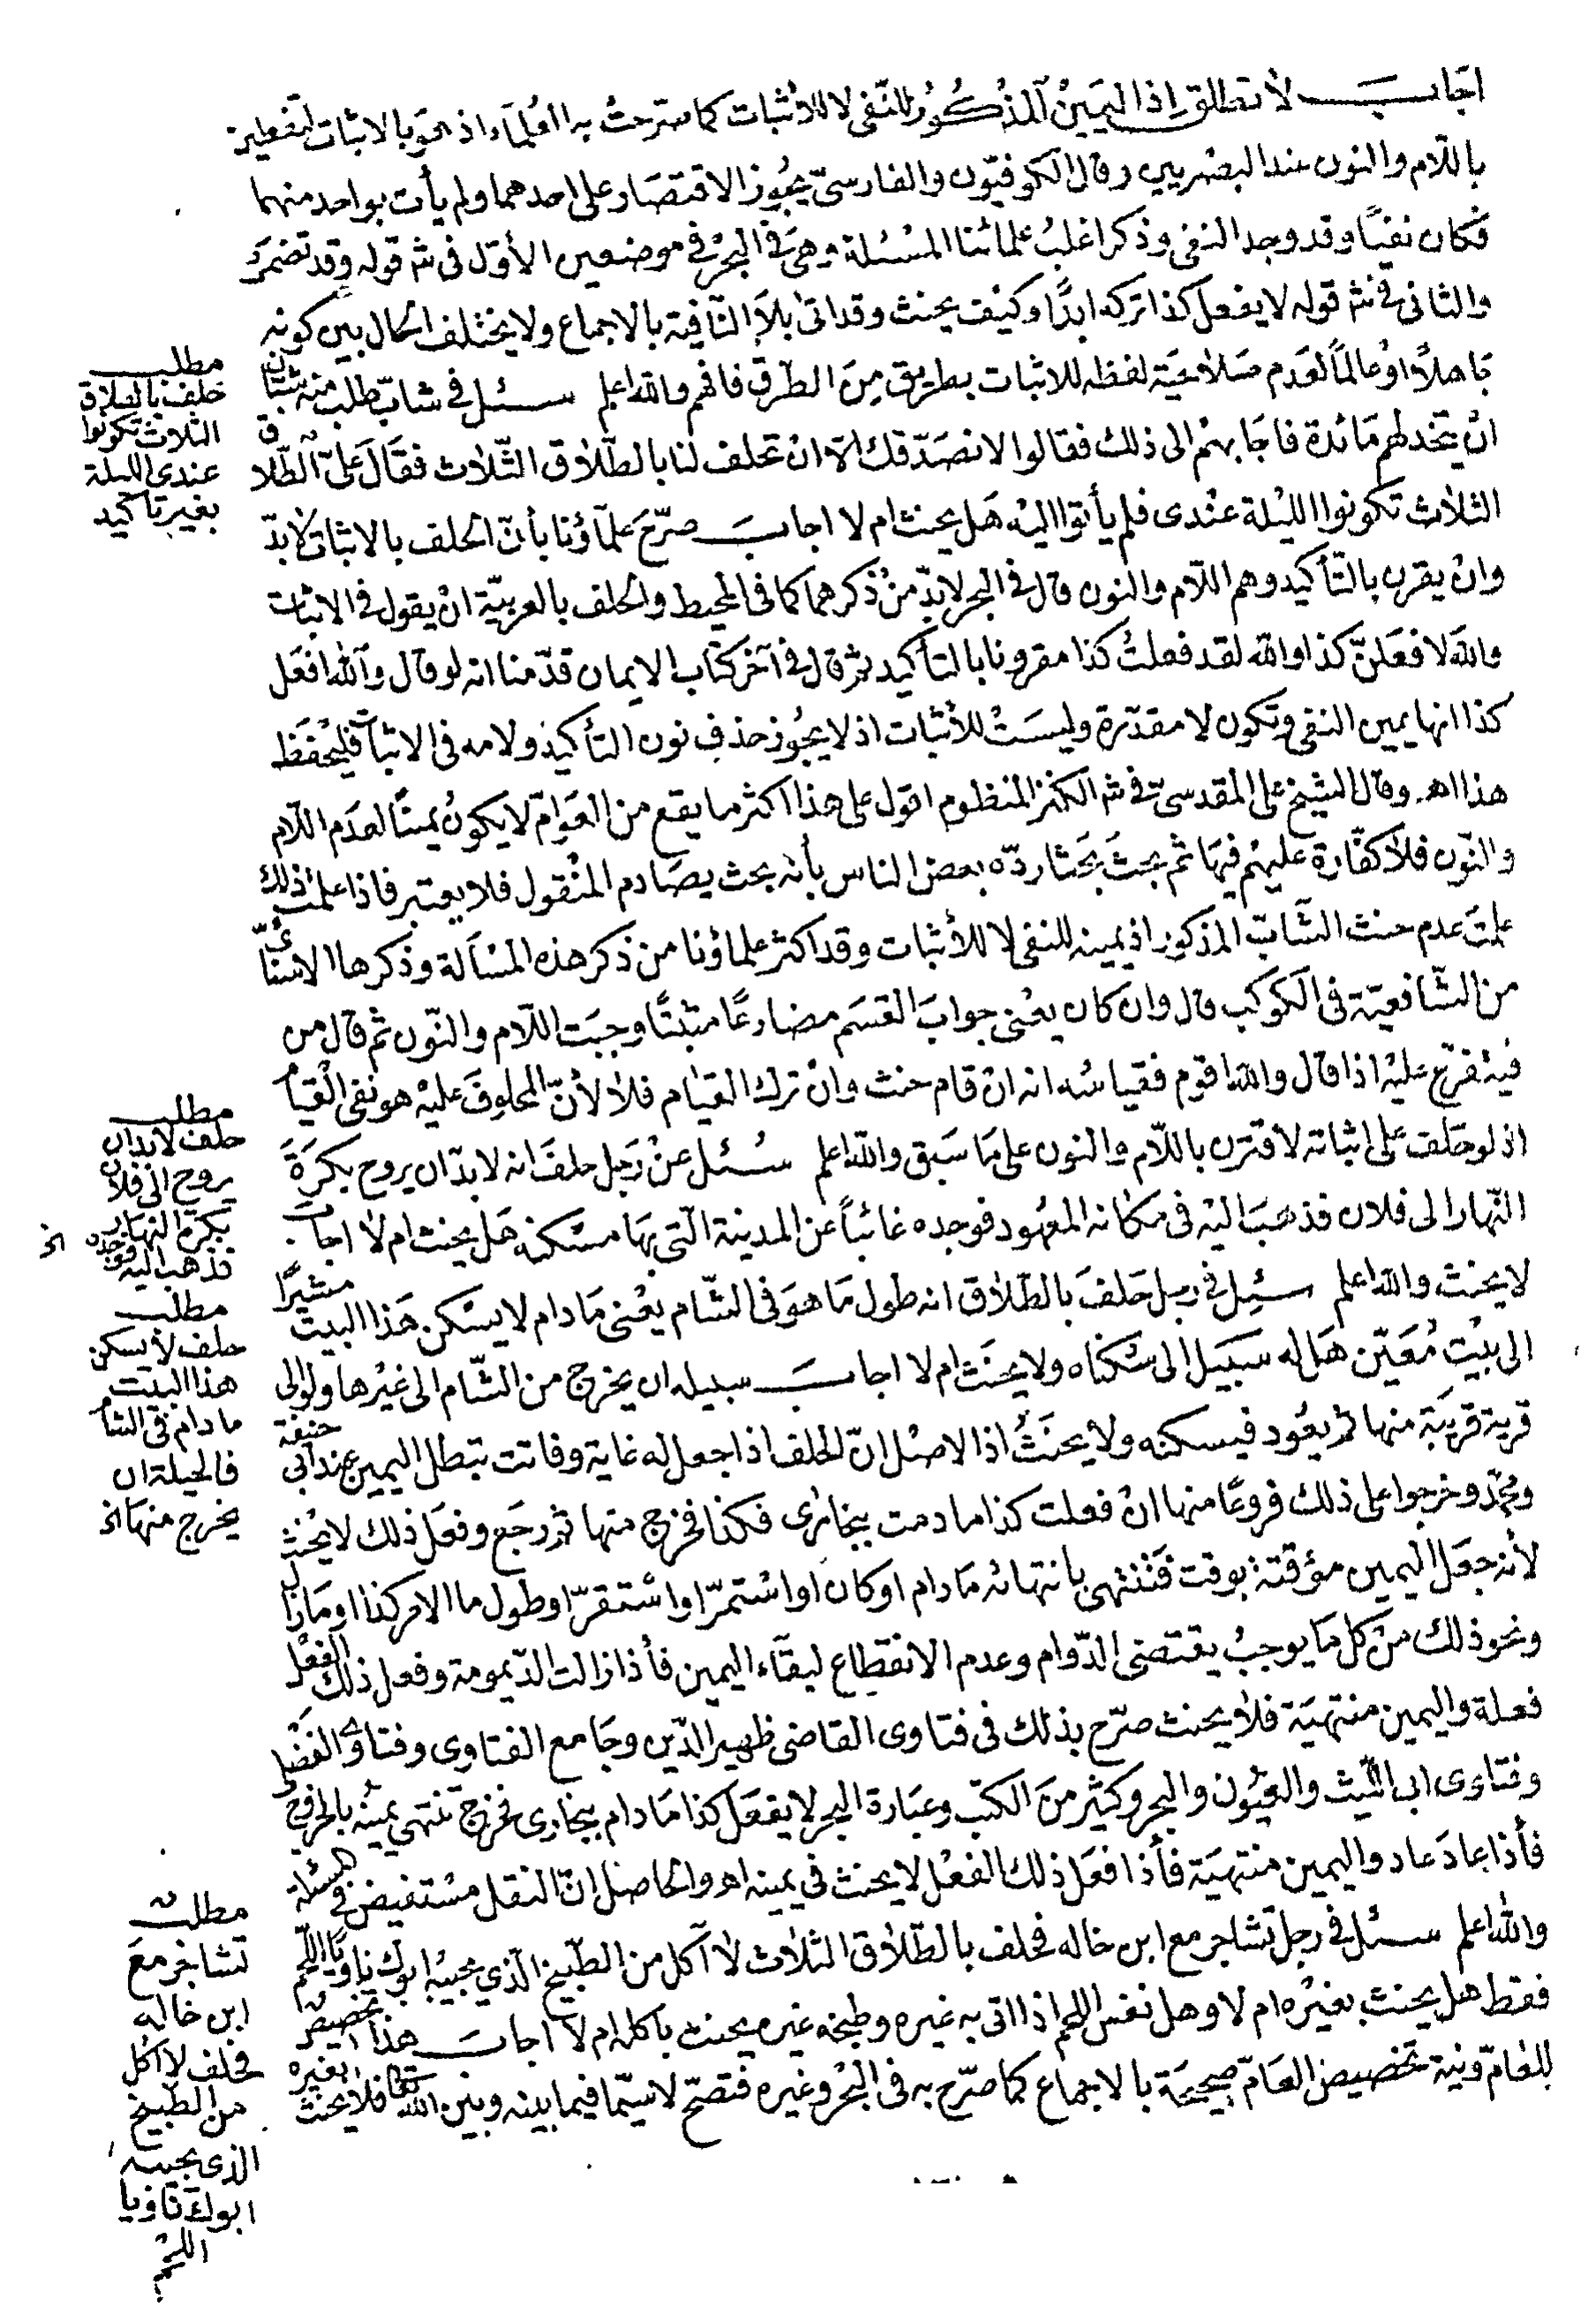 اجاب لا تطلق اذ اليمين المذكور للنفى لا للاثبات كما صرحت به العلماء اذ هو بالاثبات
باللام والنون عند البصريين وقال الكوفيون والفارسى يجوز الاقتصار على احدهما ولم يأت بواحد منهما
فكان نفيا وقد وجد النفى وذكر اغلب علمائنا المسئلة وهى فى البحر فى موضعين الأول فى شر قوله وقد تضمر
والثانى فى شر قوله لا يفعل كذا تركه ابدا وكيف يحنث وقد اتى بلا النافية بالاجماع ولا يختلف الحال بين كونه
جاهلا او عالما لعدم صلاحية لفظه للاثبات بطريق من الطرق فافهم والله اعلم سئل فى شاب طلب منه شبان
ان يتخد لهم مائدة فاجابهم الى ذلك فقالوا لا نصدقك الا ان تحلف لنا بالطلاق الثلاث فقال علىّ الطلاق
الثلاث تكونوا الليلة عندى فلم يأتوا اليه هل يحنث ام لا اجاب صرح علماؤنا بأن الحلف بالاثبات لا بد
وان يقرن بالتأكيد وهم اللام والنون قال فى البحر لا بد من ذكرهما كما فى المحيط والحلف بالعربية ان يقول فى الاثبات
والله لافعلن كذا والله لقد فعلت كذا مقرونا بالتأكيد ثم قال فى آخر كتاب الايمان قدمنا انه لو قال والله افعل
كذا انها يمين النفى وتكون لا مقدرة وليست للأثبات اذ لا يجوز حذف نون التأكيد ولامه فى الاثبات فليحفظ
هذا اهـ وقال الشيخ على المقدسى فى شر الكنز المنظوم اقول على هذا اكثر ما يقع من العوام لا يكون يمينا لعدم اللام
والنون فلا كفارة عليهم فيها ثم بحث بحثا رده بعض الناس بأنه بحث يصادم المنقول فلا يعتبر فاذا علمت ذلك
علمت عدم حنث الشاب المذكور اذ يمينه للنفى لا للأثبات وقد اكثر علماؤنا من ذكر هذه المسألة وذكرها الاسنائى
من الشافعية فى الكوكب قال وان كان يعنى جواب القسم مضارعا مثبتا وجبت اللام والنون ثم قال من
فيتفرع عليه اذا قال والله اقوم فقياسه انه ان قام حنث وان ترك القيام فلا لأن المحلوف عليه هو نفى القيام
اذ لو حلف على اثباته لاقترن باللام والنون على ما سبق والله اعلم سئل عن رجل حلف انه لا بد ان يروح بكرة
النهار الى فلان فذهب اليه فى مكانه المعهود فوجده غائبا عن المدينة التى بها مسكنه هل يحنث ام لا اجاب
لا يحنث والله اعلم سئل فى رجل حلف بالطلاق انه طول ما هو فى الشام يعنى ما دام لا يسكن هذا البيت مشيرا
الى بيت معين هل له سبيل الى سكناه ولا يحنث ام لا اجاب سبيله ان يخرج من الشام الى غيرها ولو الى
قرية قريبة منها ثم يعود فيسكنه ولا يحنث اذ الاصل ان الحلف اذا جعل له غاية وفاتت تبطل اليمين عند ابى حنيفة
ومحمد وخرجوا على ذلك فروعا منها ان فعلت كذا ما دمت ببخارى فكذا فخرج منها ثم رجع وفعل ذلك لا يحنث
لأنه جعل اليمين مؤقتة بوقت فتنتهى بانتهائه ما دام او كان او استمر او استقر او طول ما الامر كذا او مازال
ونحو ذلك من كل ما يوجب يقتضى الدوام وعدم الانقطاع لبقاء اليمين فأذا زالت الديمومة وفعل ذلك الفعل
فعله واليمين منتهية فلا يحنث صرح بذلك فى فتاوى القاضى ظهير الدين وجامع الفتاوى وفتاوى الفضلى
وفتاوى ابى الليث والعيون والبحر وكثير من الكتب وعبارة البحر لا يفعل كذا ما دام ببخارى فخرج تنتهى يمينه بالخروج
فأذا عاد عاد واليمين منتهية فأذا فعل ذلك الفعل لا يحنث فى يمينه اهـ والحاصل ان النقل مستفيض فى المسئلة
والله اعلم سئل فى رجل تشاجر مع ابن خاله فحلف بالطلاق الثلاث لا آكل من الطبيخ الذى يجيبه ابوك ناويا اللحم
فقط هل يحنث بغيره ام لا وهل نفس اللحم اذا اتى به غيره وطبخه غيره يحنث باكله ام لا اجاب هذا تخصيص
للعام ونية تخصيص العام صحيحة بالاجماع كما صرح به فى البحر وغيره فتصح لا سيما فيما بينه وبين الله تعالى فلا يحنث بغيره
مطلب
حلف بالطلاق
الثلاث تكونوا
عندى الليلة
بغير تأكيد
مطلب
حلف لا بد ان
يروح الى فلان
بكرة النهار
فذهب اليه فوجده الخ
مطلب
حلف لا يسكن
هذا البيت
ما دام فى الشام
فالحيلة ان
يخرج منها الخ
مطلب
تشاجر مع
ابن خاله
فحلف لا آكل
من الطبيخ
الذى يجيبه
ابوك ناويا
اللحم